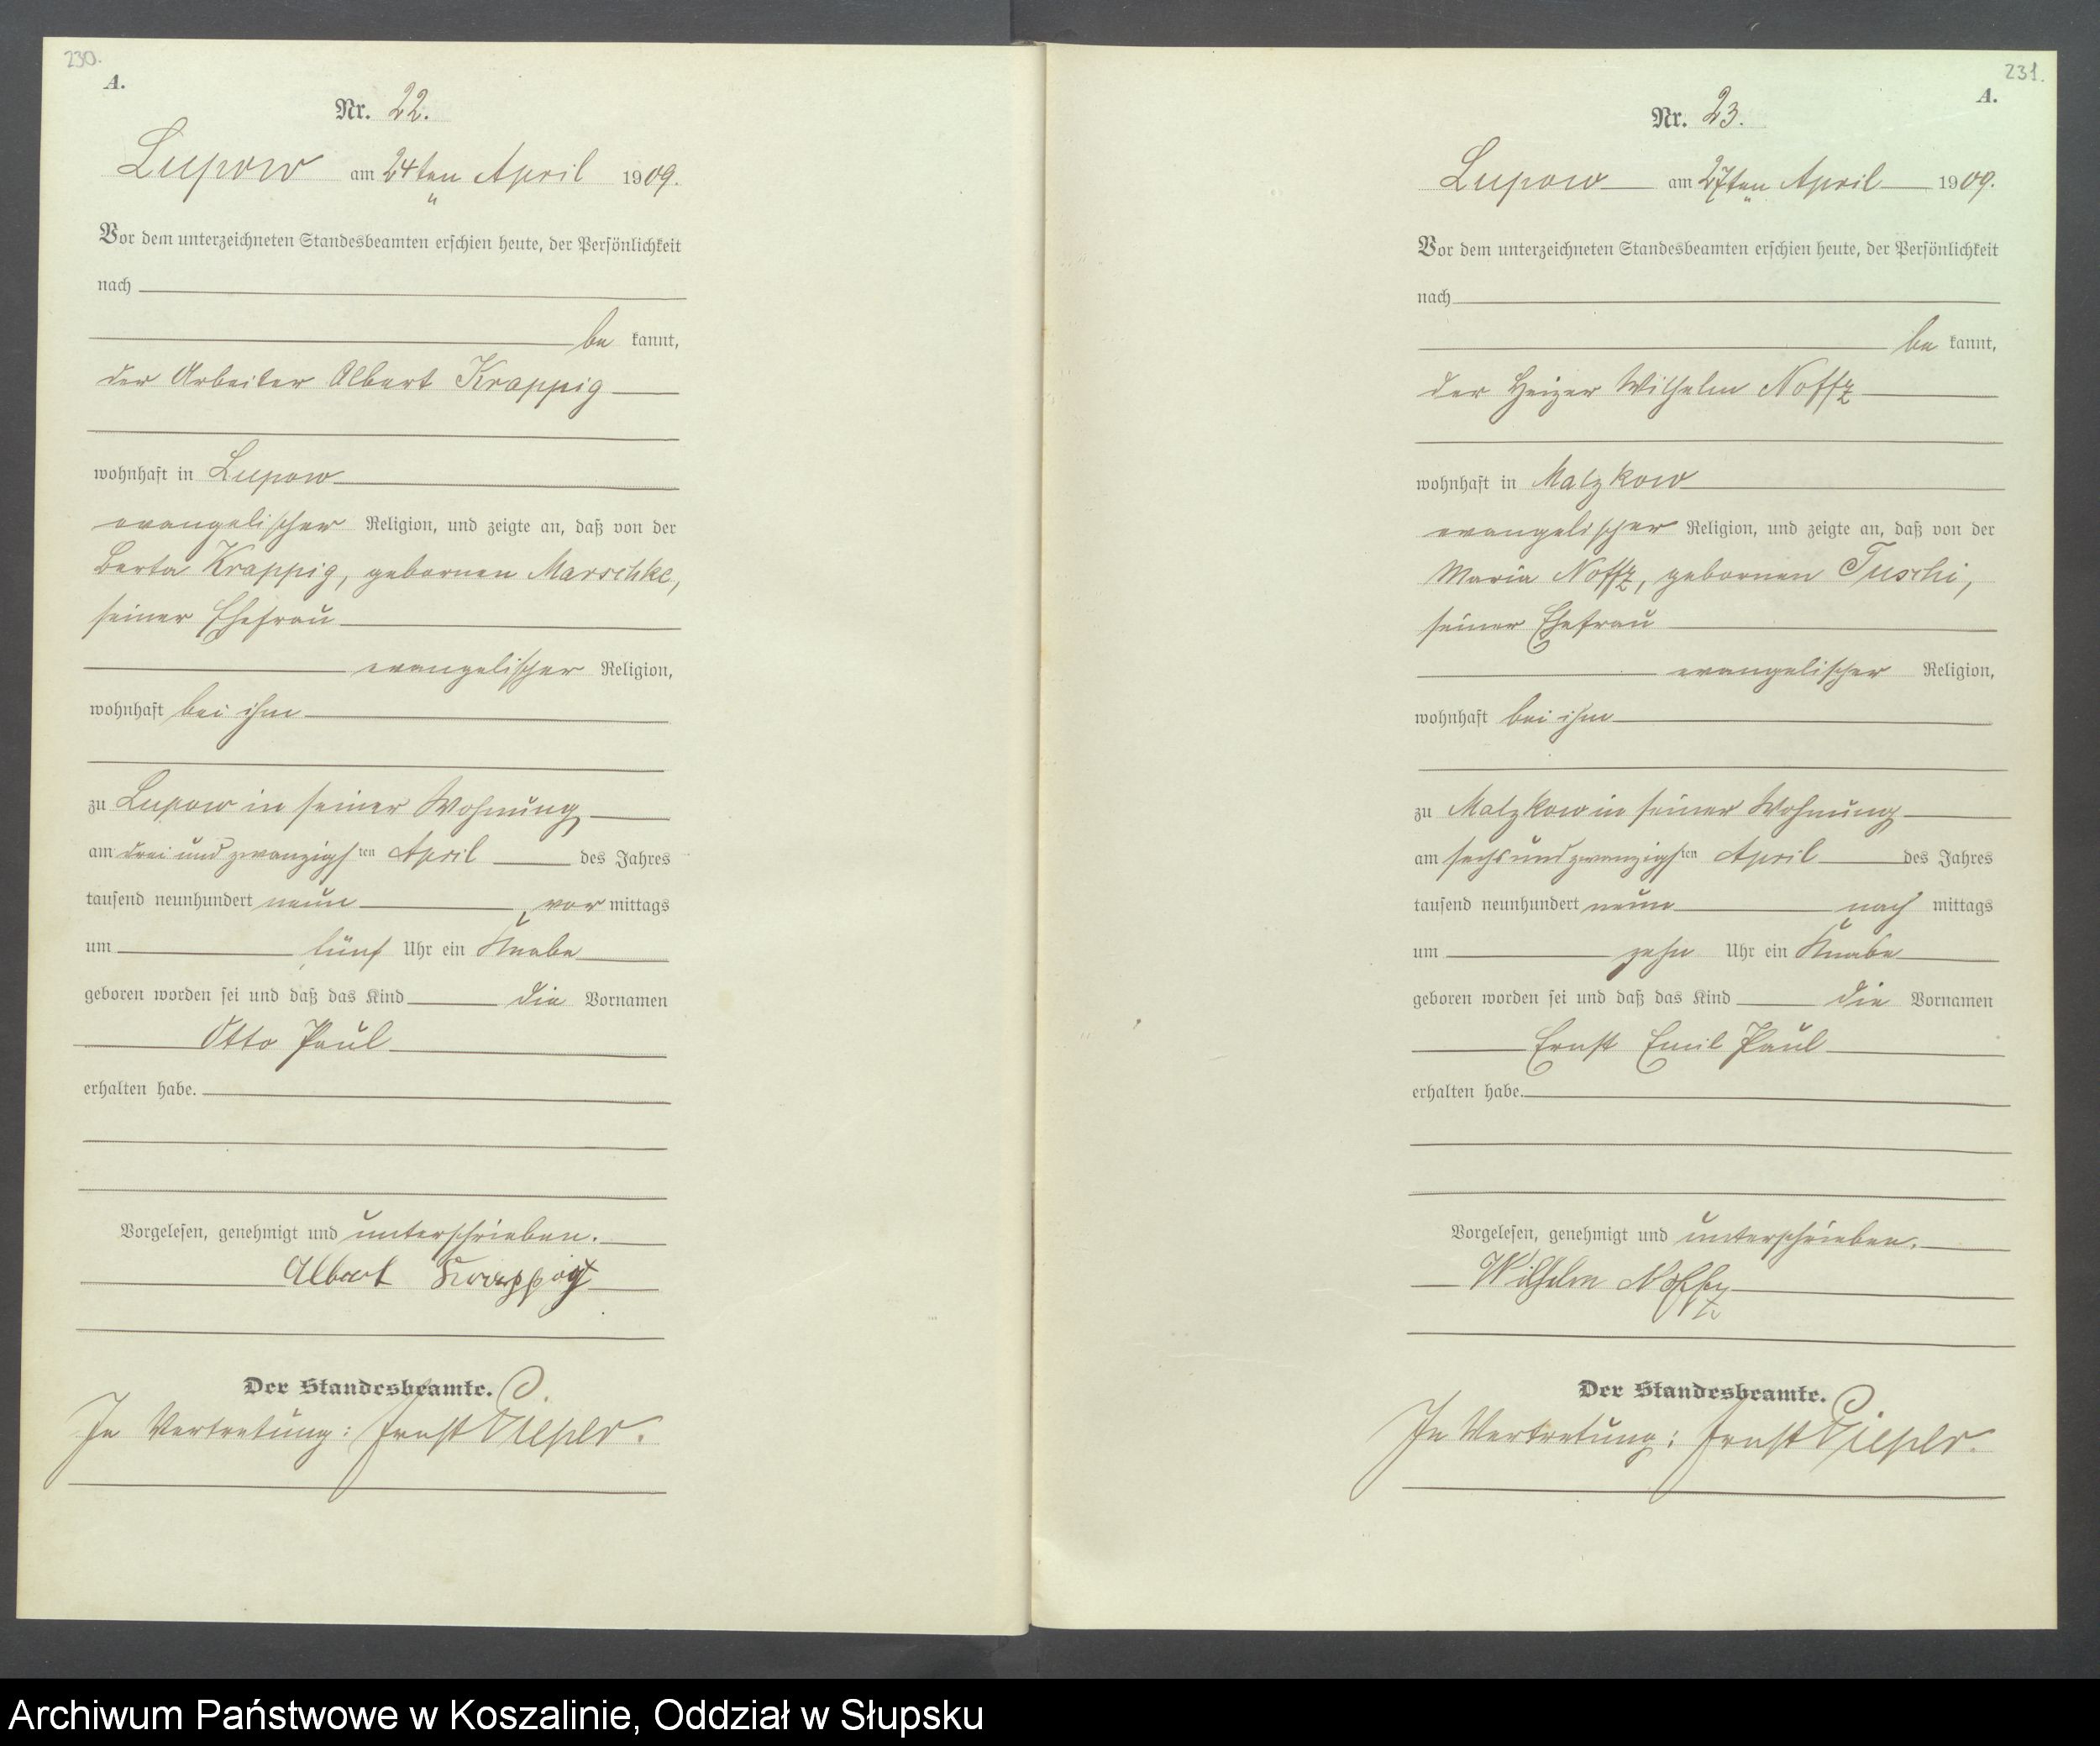 230.
A.
Nr. 22.
Lupow am 24ten April 1909.
Vor dem unterzeichneten Standesbeamten erschien heute, der Persönlichkeit
nach
be kannt,
der Arbeiter Albert Krappig
wohnhaft in Lupow
evangelischer Religion, und zeigte an, daß von der
Berta Krappig, gebornen Marschke,
seiner Ehefrau
evangelischer Religion,
wohnhaft bei ihm
zu Lupow in seiner Wohnung
am drei und zwanzigsten April des Jahres
tausend neunhundert neun vor mittags
um fünf Uhr ein Knabe
geboren worden sei und daß das Kind die Vornamen
Otto Paul
erhalten habe.
Vorgelesen, genehmigt und unterschrieben.
Albert Krappig
Der Standesbeamte.
In Vertretung: Ernst Pieper.
231.
A.
Nr. 23.
Lupow am 27ten April 1909.
Vor dem unterzeichneten Standesbeamten erschien heute, der Persönlichkeit
nach
be kannt,
der Heizer Wilhelm Noffz
wohnhaft in Malzkow
evangelischer Religion, und zeigte an, daß von der
Maria Noffz, gebornen Tuschi,
seiner Ehefrau
evangelischer Religion,
wohnhaft bei ihm
zu Malzkow in seiner Wohnung
am sechs und zwanzigsten April des Jahres
tausend neunhundert neun nach mittags
um zehn Uhr ein Knabe
geboren worden sei und daß das Kind die Vornamen
Ernst Emil Paul
erhalten habe.
Vorgelesen, genehmigt und unterschrieben.
Wilhelm Noffz
Der Standesbeamte.
In Vertretung: Ernst Pieper.
Archiwum Państwowe w Koszalinie, Oddział w Słupsku